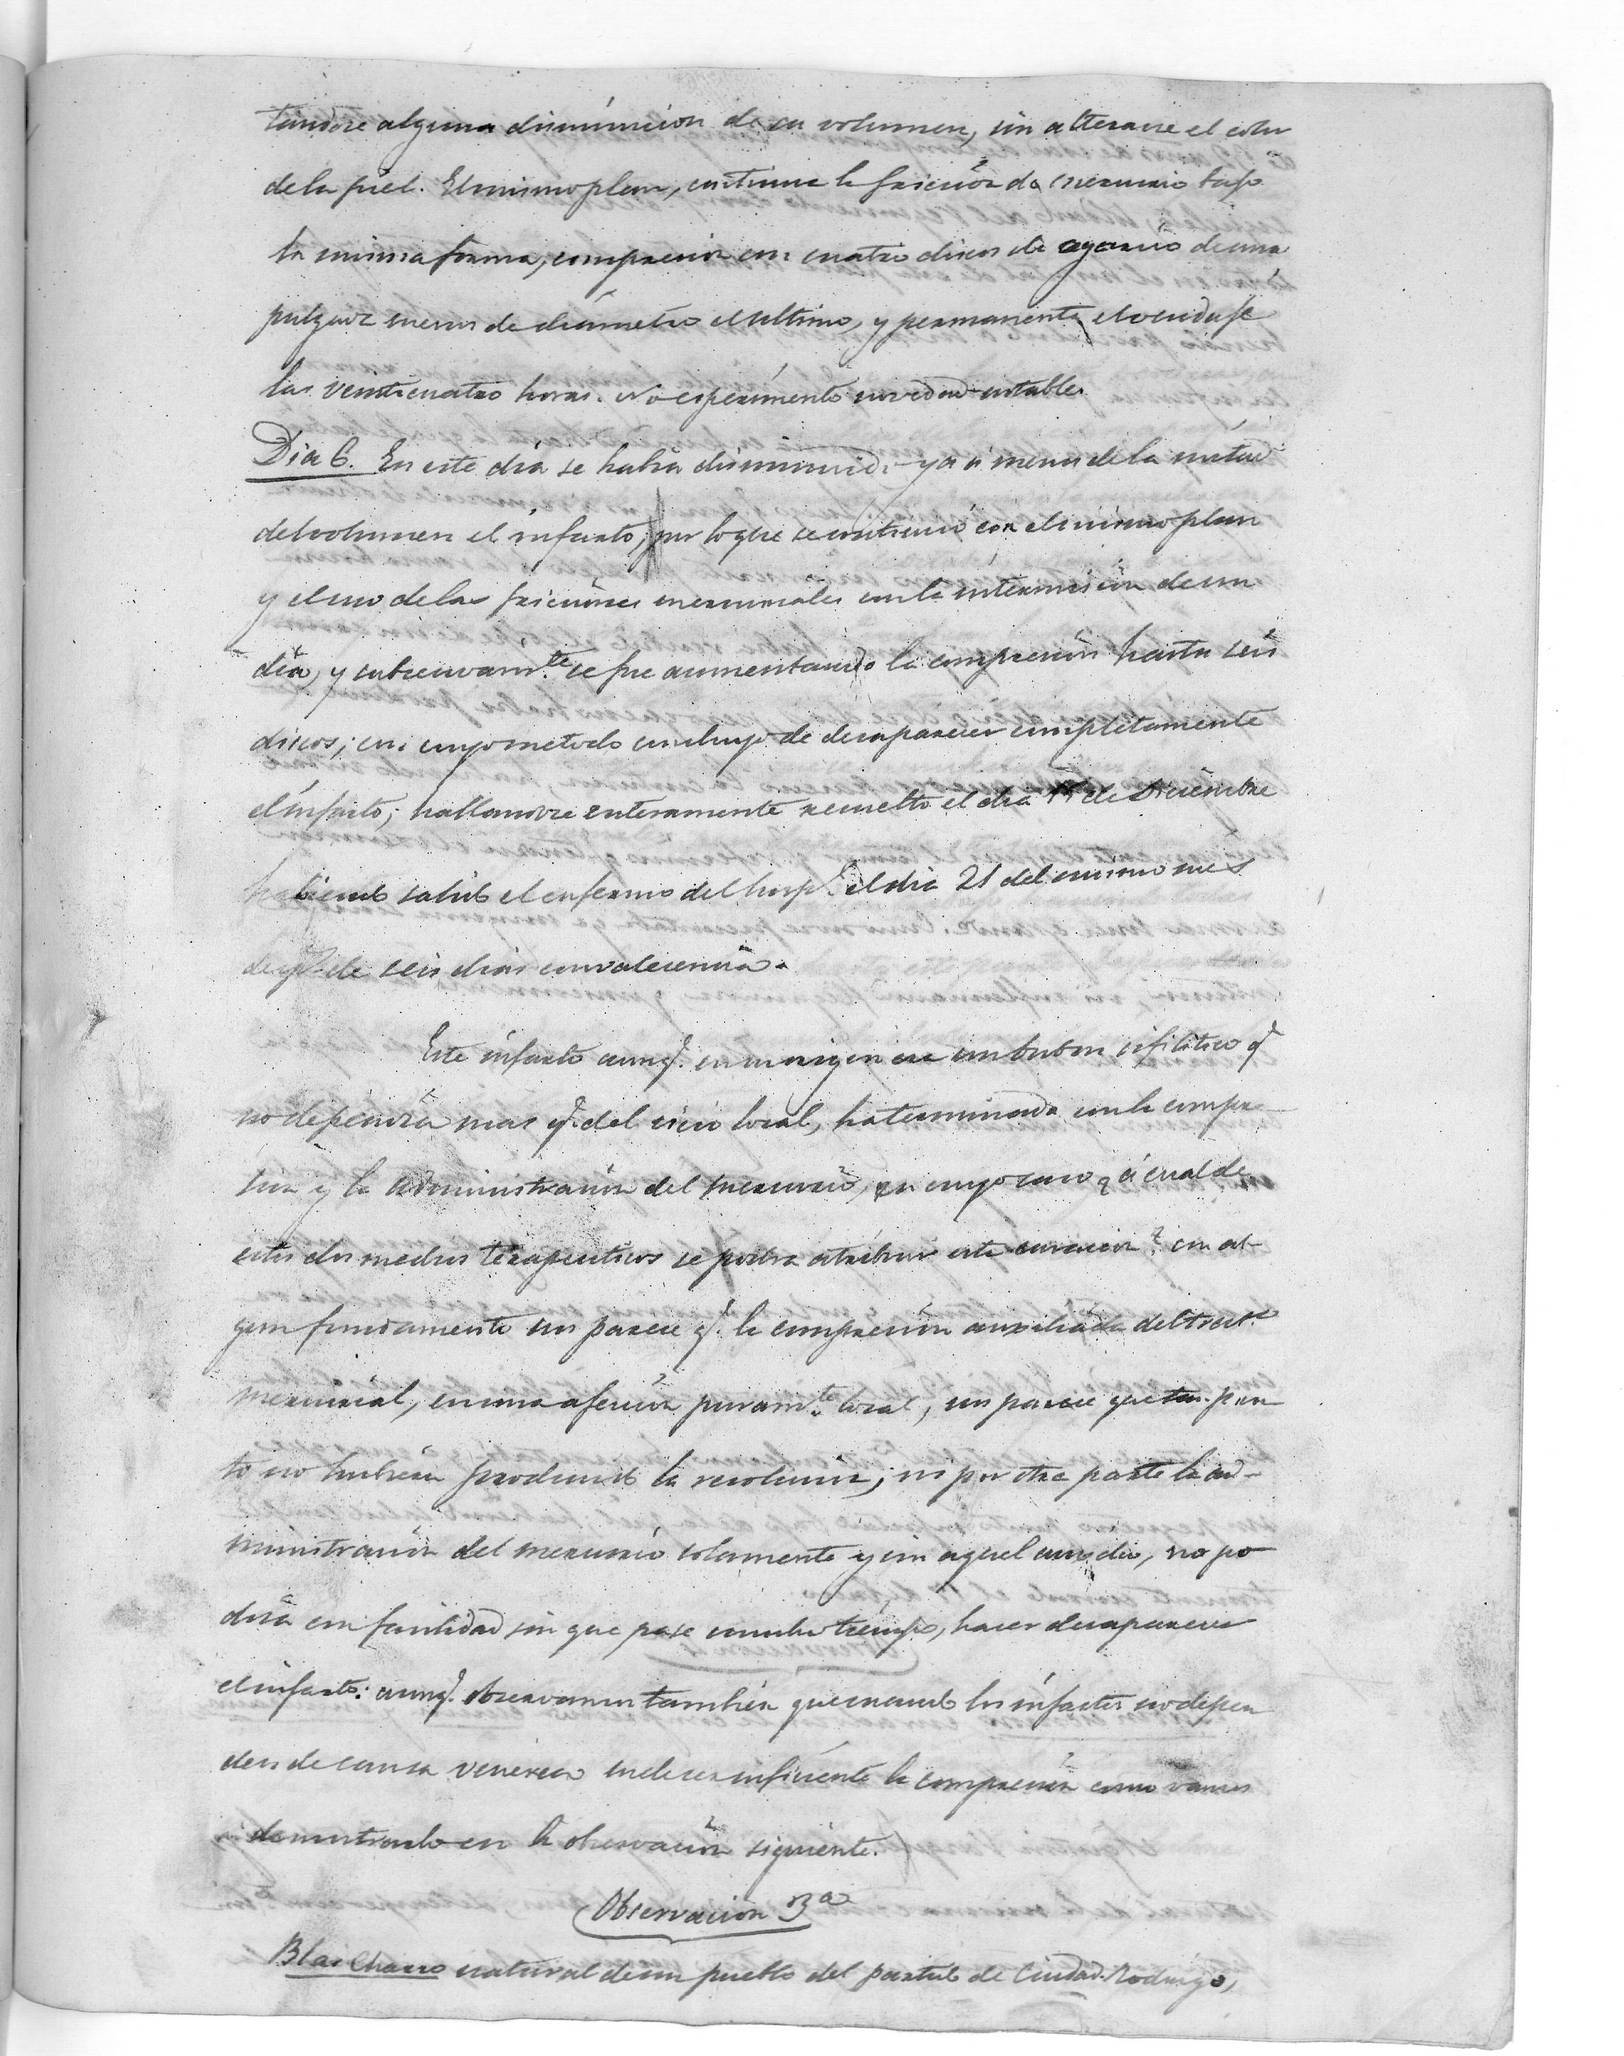 tandose alguna disminucion de su volumen, sin alterarse el color
de la piel. El mismo plan, continua la friccion de mercurio bajo
la misma forma, compresion con cuatro discos de agarico de una
pulgada menos de diámetro el ultimo, y permanente el vendaje
las veinticuatro horas. No esperimentó novedad notable.
Dia 6. En este dia se habia disminuido ya á menos de la mitad
del volumen el infarto, por lo que se continuó con el mismo plan
y el uso de las fricciones mercuriales con la intermision de un
dia, y subcesivam.te se fue aumentando la compresion hasta seis
discos; con cuyo metodo concluyó de desaparecer completamente
el infarto; hallandose enteramente resuelto el dia 15 de Diciembre
habiendo salido el enfermo del hosp.l el dia 21 del mismo més
desp.s de seis dias convalecencia.
Este infarto aunq.e en su origen era un bubon sifilitico q.e
no dependia mas q.e del vicio local, ha terminado con la compre-
sion y la administracion del mercurio, en cuyo caso ¿á cual de
estos dos medios terapeuticos se podra atribuir esta curacion? con al-
gun fundamento nos parece q.e la compresion auxiliada del trat.to
mercurial, en una afeccion puram.te local, nos parece que tan pron
to no hubiera producido la resolucion; ni por otra parte la ad-
ministracion del mercurio solamente y sin aquel medio, no po
dria con facilidad sin que pase mucho tiempo, hacer desaparecer
el infarto: aunq.e observamos tambien que cuando los infartos no depen
den de causa venerea suele ser suficiente la compresion como vamos
demostrando en la observacion siguiente.
Observacion 3.a
Blas Charro natural de un pueblo del partido de Ciudad-Rodrigo,